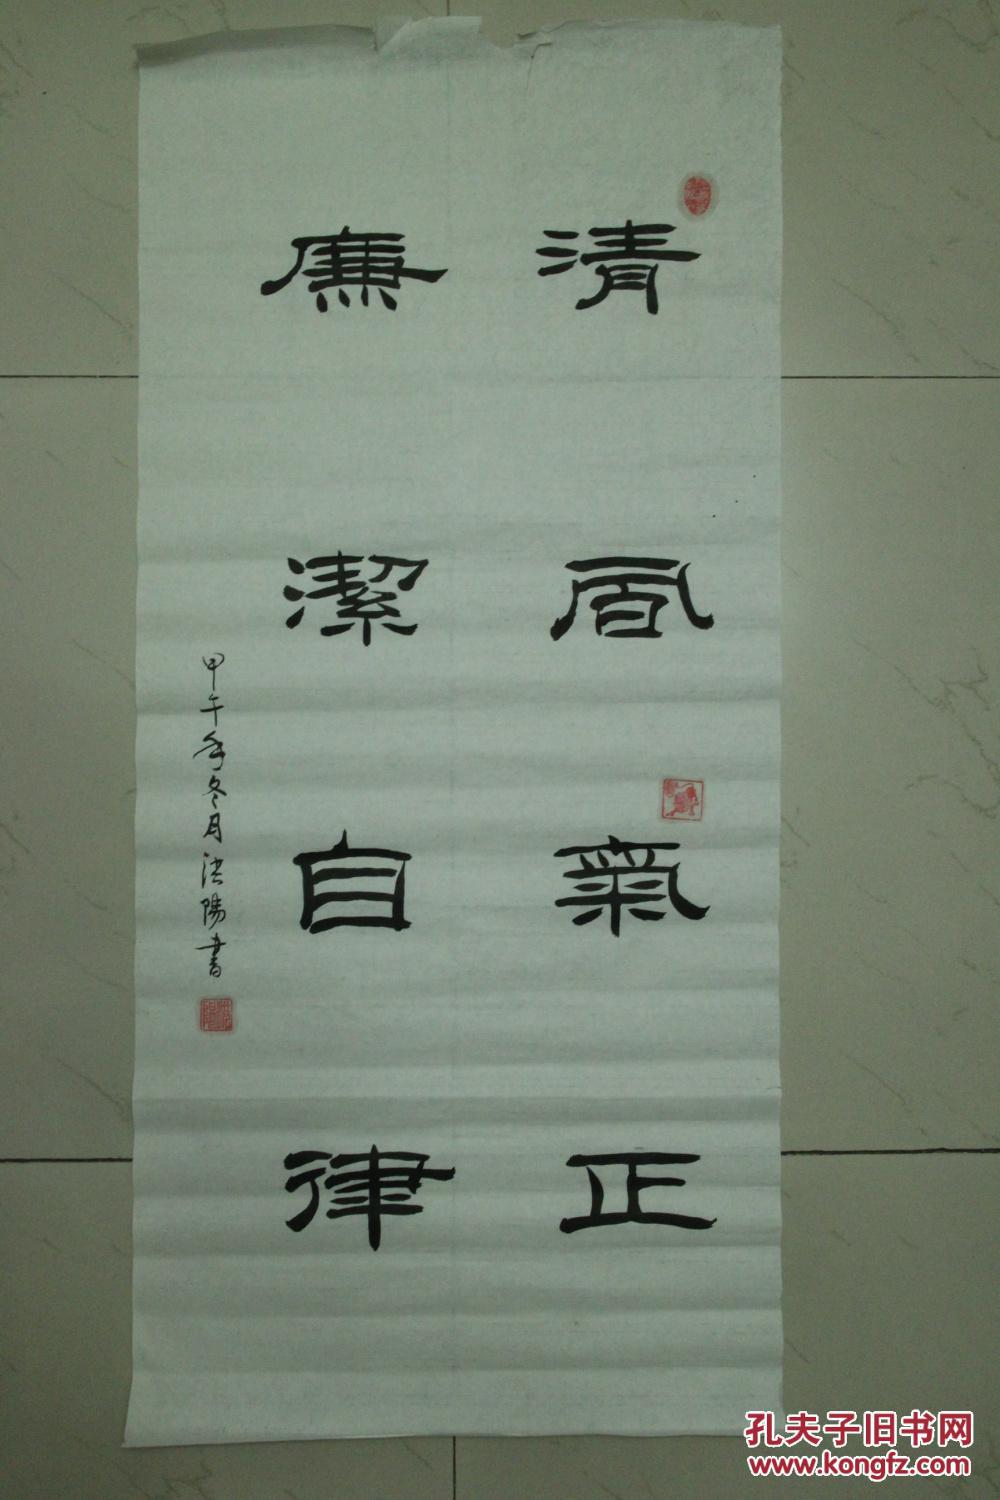 清風氣正
廉潔自律
甲午年冬月洪陽書
孔夫子旧书网
www.kongfz.com